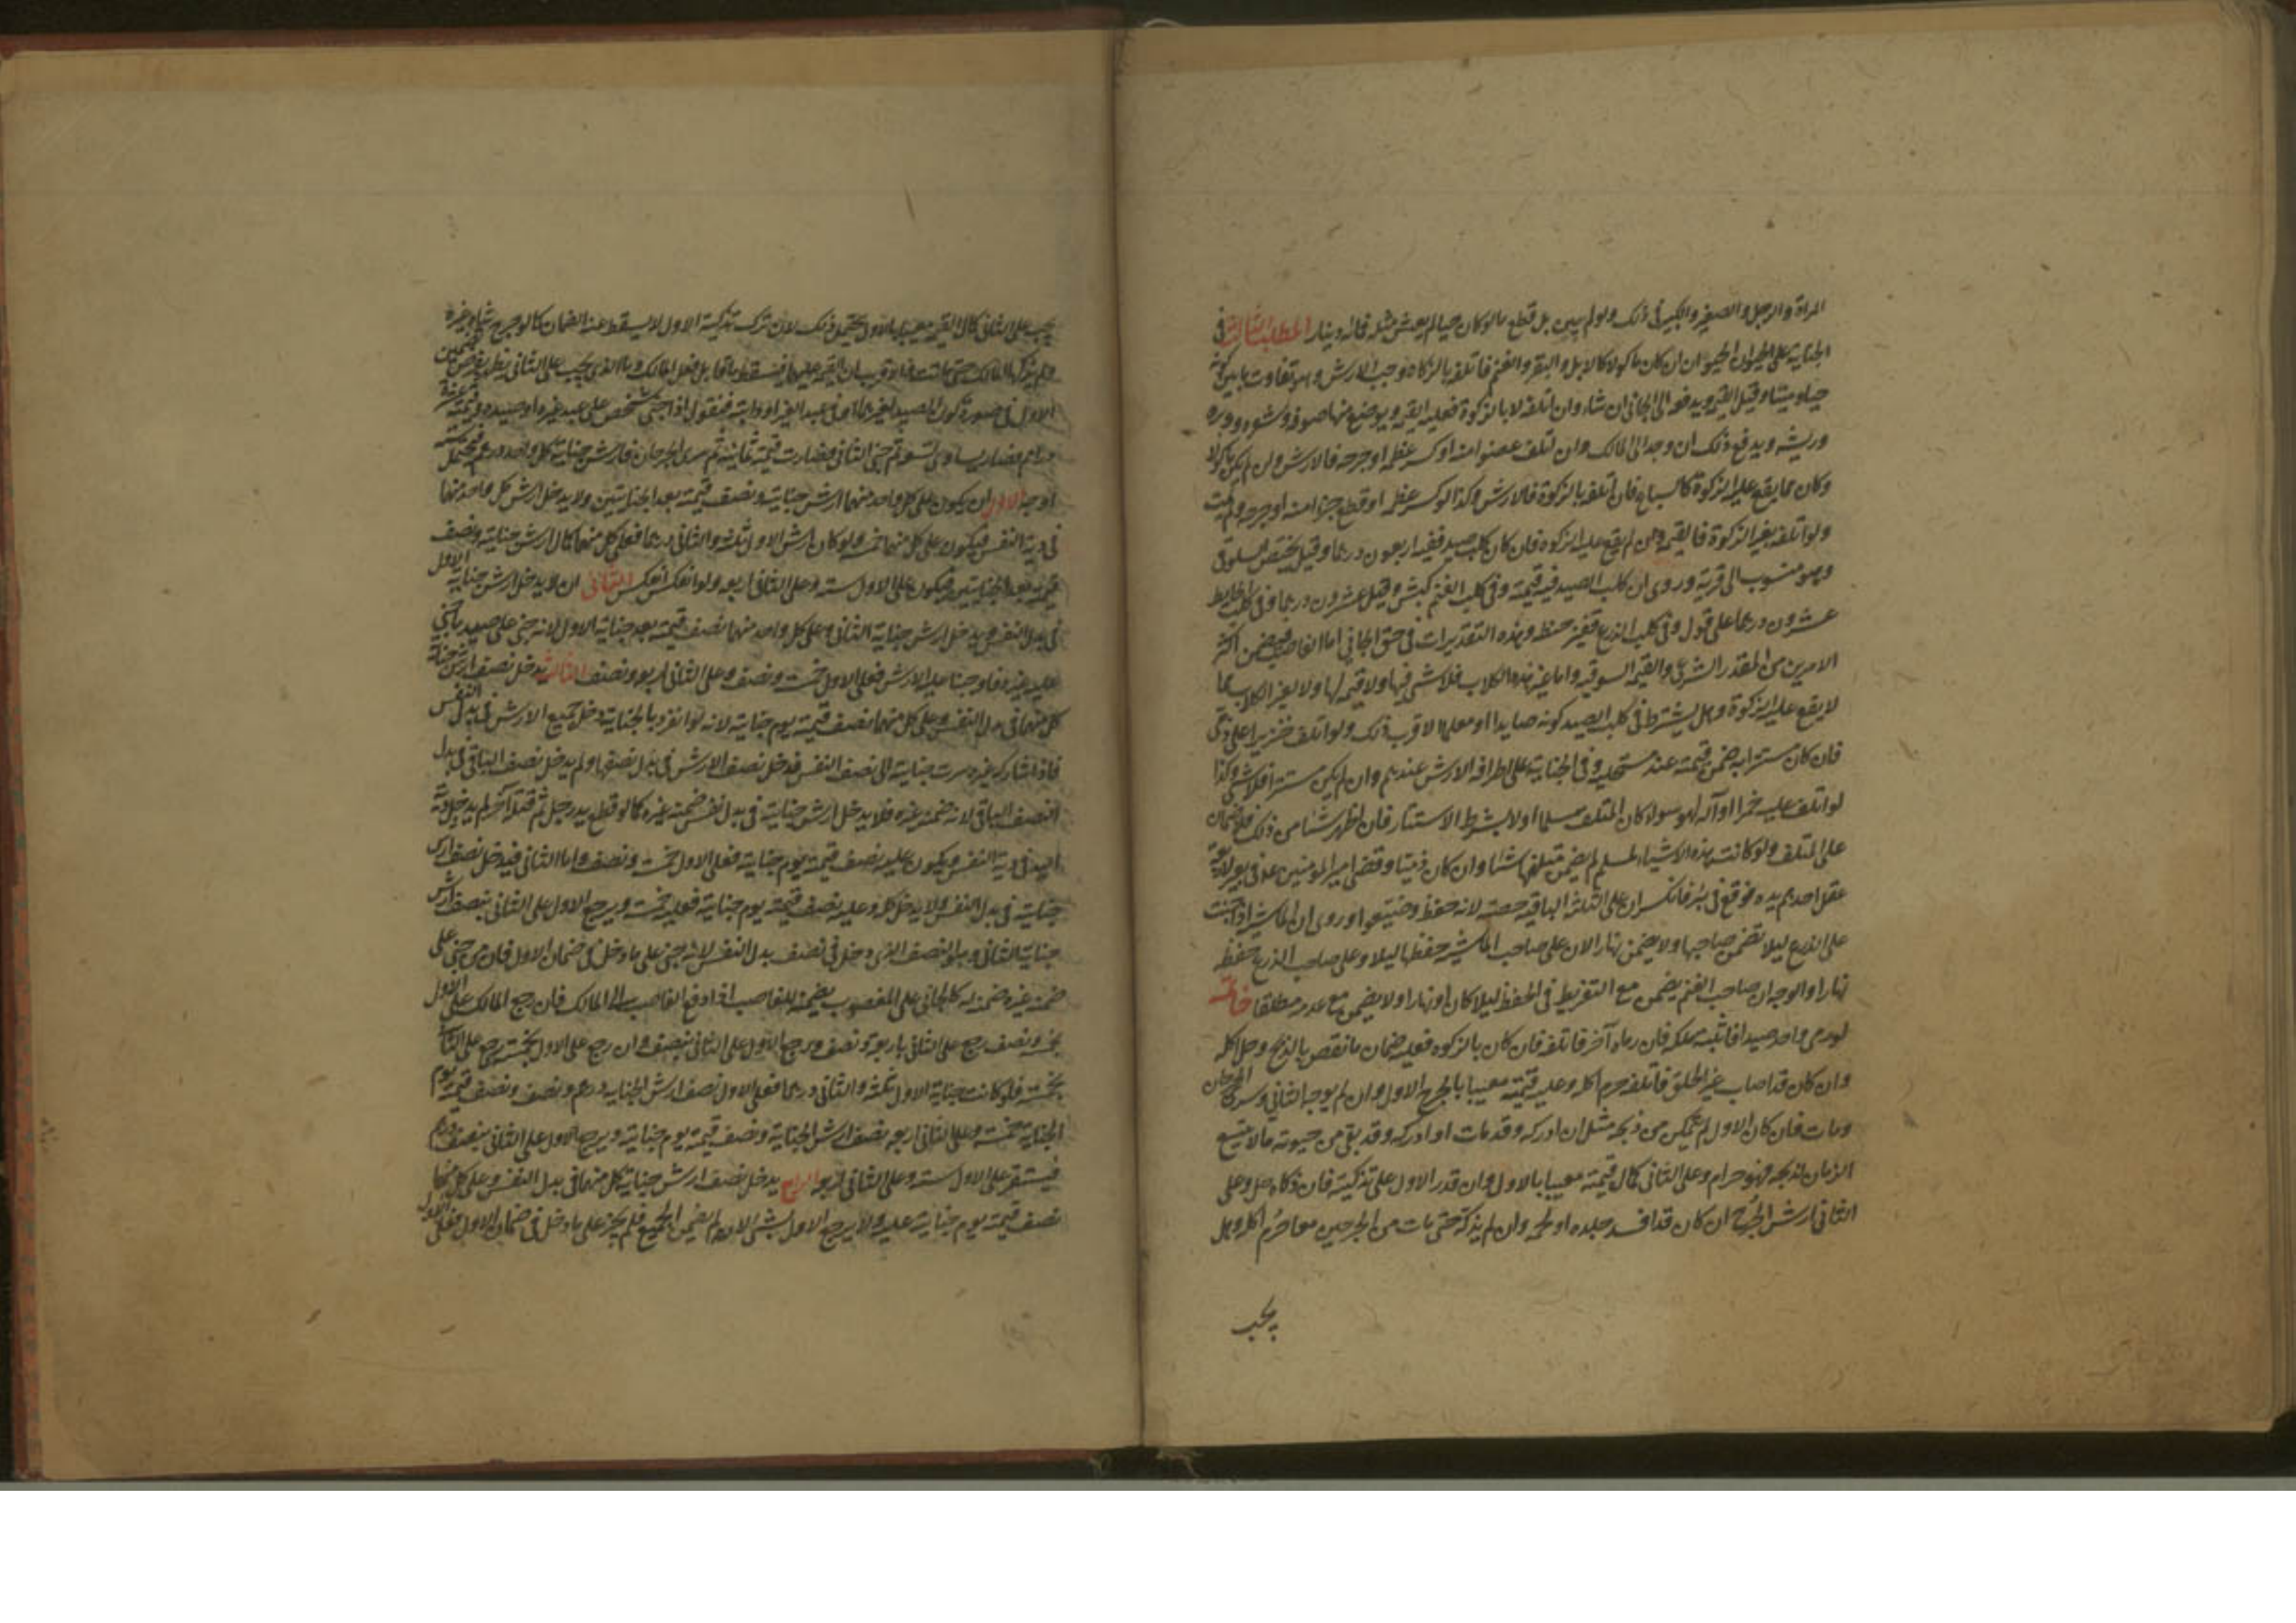 المراة والرجل والصغير والكبير فى ذلك ولو لم يبن بل قطع ما لو كان حيا لم يعش مثله فمائة دينار المطلب الثالث فى
الجناية على الحيوان الحيوان ان كان ماكولا كالابل والبقر والغنم فاتلفه بالزكاة وجب الارش وهو تفاوت ما بين كونه
حيا وميتا وقيل القيمة ويدفعه الى الجانى ان شاء وان اتلفه لا بالزكوة فعليه القيمة ويوضع منها صوفه وشعره ووبره
وريشه ويدفع ذلك ان وجد الى المالك وان تلف عضوا منه او كسر عظمه او جرحه فالارش وان لم يكن ماكولا
وكان مما يقع عليه الزكوة كالسباع فان اتلفه بالزكوة فالارش وكذا لو كسر عظمه او قطع جزءا منه او جرحه ولم يمت
ولو اتلفه بغير الزكوة فالقيمة وان لم يقع عليه الزكوة فان كان كلب صيد ففيه اربعون درهما وقيل يختص السلوقى
وهو منسوب الى قرية وروى ان كلب الصيد فيه قيمته وفى كلب الغنم كبش وقيل عشرون درهما وفى كلب الحايط
عشرون درهما على قول وفى كلب الزرع قفيز حنطه وهذه التقديرات فى حق الجانى اما الغاصب فيضمن اكثر
الامرين من المقدر الشرعى والقيمة السوقيه واما غير هذه الكلاب فلا شى فيها ولا قيمة لها ولا لغير الكلاب مما
لا يقع عليه الزكوة وهل يشترط فى كلب الصيد كونه صايدا او معلما الاقرب ذلك ولو اتلف خنزيرا على ذمى
فان كان مستترا به ضمن قيمته عند مستحليه وفى الجناية على اطرافه الارش عندهم وان لم يكن مستترا فلا شى وكذا
لو اتلف عليه خمرا او آلة لهو سواء كان المتلف مسلما اولا بشرط الاستتار فان اظهر شيئا من ذلك فلا ضمان
على المتلف ولو كانت هذه الاشياء لمسلم لم يضمن متلفها شيئا وان كان ذميا وقضى امير المومنين عم فى بعير لاربعة
عقل احدهم يده فوقع فى بئر فانكسر ان على الثلثة الباقية حصته لانه حفظ وضيعوا وروى ان الماشية اذا جنت
على الزرع ليلا تضمن صاحبها ولا يضمن نهارا لان على صاحب الماشيه حفظها ليلا وعلى صاحب الزرع حفظه
نهارا والوجه ان صاحب الغنم يضمن مع التفريط فى الحفظ ليلا كان او نهارا ولا يضمن مع عدمه مطلقا خاتمه
لو رمى واحد صيدا فاثبته ملكه فان رماه آخر فاتلفه فان كان بالزكوه فعليه ضمان ما نقص بالذبح وحل اكله
وان كان قد اصاب غير الحلق فاتلفه حرم اكله وعليه قيمته معيبا بالجرح الاول وان لم يوجه الثانى وسرى الجرحان
ومات فان كان الاول لم يتمكن من ذبحه مثل ان ادركه وقد مات او ادركه وقد بقى من حيوته ما لا يتسع
الزمان لذبحه فهو حرام وعلى الثانى كمال قيمته معيبا بالاول وان قدر الاول على تذكيته فان ذكاه حل وعلى
الثانى ارش الجرح ان كان قد افسد جلده او لحمه وان لم يذكه حتى مات من الجرحين معا حرم اكله وهل
يجب
يجب على الثانى كمال القيمة معيبا بالاول يحتمل ذلك لان ترك تذكية الاول لا يسقط عنه الضمان كما لو جرح شاة غيره
ولم يذكها المالك حتى ماتت فالاقرب ان القيمة عليهما فيسقط ما قابل فعل المالك واما الذى يجب على الثانى يظهر بفرض
الاول فى صورة كون الصيد لغيرهما او فى عبد الغير او دابته فنقول اذا جنى شخص على عبد غيره او صيده وقيمته عشرة
دراهم فصار يساوى تسعة ثم جنى الثانى فصارت قيمته ثمانية ثم سرى الجرحان فارش جناية كل واحد درهم فيحتمل
اوجه الاول ان يكون على كل واحد منهما ارش جنايته ونصف قيمته بعد الجنايتين ولا يدخل ارش كل واحد منهما
فى دية النفس فيكون على كل منهما خمسة ولو كان ارش الاول ثلثه والثانى درهما فعلى كل منهما كمال ارش جنايته ونصف
قيمته بعد الجنايتين فيكون على الاول ستة وعلى الثانى اربعه ولو انعكس انعكس الثانى ان لا يدخل ارش جناية الاول
فى بدل النفس ويدخل ارش جناية الثانى وعلى كل واحد منهما نصف قيمته بعد جناية الاول لانه جنى على صيد ما جنى
عليه غيره فاوجبنا عليه الارش فعلى الاول خمسة ونصف وعلى الثانى اربعه ونصف الثالث يدخل نصف ارش جناية
كل منهما فى بدل النفس وعلى كل منهما نصف قيمته يوم جنايته لانه لو انفرد بالجناية دخل جميع الارش فى بدل النفس
فاذا شاركه غيره سرت جنايته الى نصف النفس فدخل نصف الارش فى بدل نصفها ولم يدخل نصف الباقى فى بدل
النصف الباقى لانه ضمنه غيره فلا يدخل ارش جنايته فى بدل نفس ضمنه غيره كما لو قطع يد رجل ثم قتله آخر لم يدخل دية
اليد فى دية النفس ويكون عليه نصف قيمته يوم جنايته فعلى الاول خمسة ونصف واما الثانى فيدخل نصف ارش
جنايته فى بدل النفس ولا يدخل كله وعليه نصف قيمته يوم جنايته فعليه خمسة ويرجع الاول على الثانى بنصف ارش
جناية الثانى وهو النصف الذى دخل فى نصف بدل النفس لانه جنى على ما دخل فى ضمان الاول فان من جنى على
ضمنه غيره ضمنه له كالجانى على المغصوب يضمنه للغاصب اذا دفع الغاصب الى المالك فان رجع المالك على الاول
بخمسة ونصف رجع على الثانى باربعة ونصف ويرجع الاول على الثانى بنصف وان رجع على الاول بخمسة رجع على الثانى
بخمسة فلو كانت جناية الاول ثلثه والثانى درهما فعلى الاول نصف ارش الجنايه درهم ونصف ونصف قيمته يوم
الجناية خمسة وعلى الثانى اربعه نصف ارش الجناية ونصف قيمته يوم جنايته ويرجع الاول على الثانى بنصف درهم
فيستقر على الاول ستة وعلى الثانى اربعه الرابع يدخل نصف ارش جناية كل منهما فى بدل النفس وعلى كل منهما
نصف قيمته يوم جنايته عليه ولا يرجع الاول بشى لانه لم يضمن الجميع فلم يجن على ما دخل فى ضمان الاول فعلى الاول